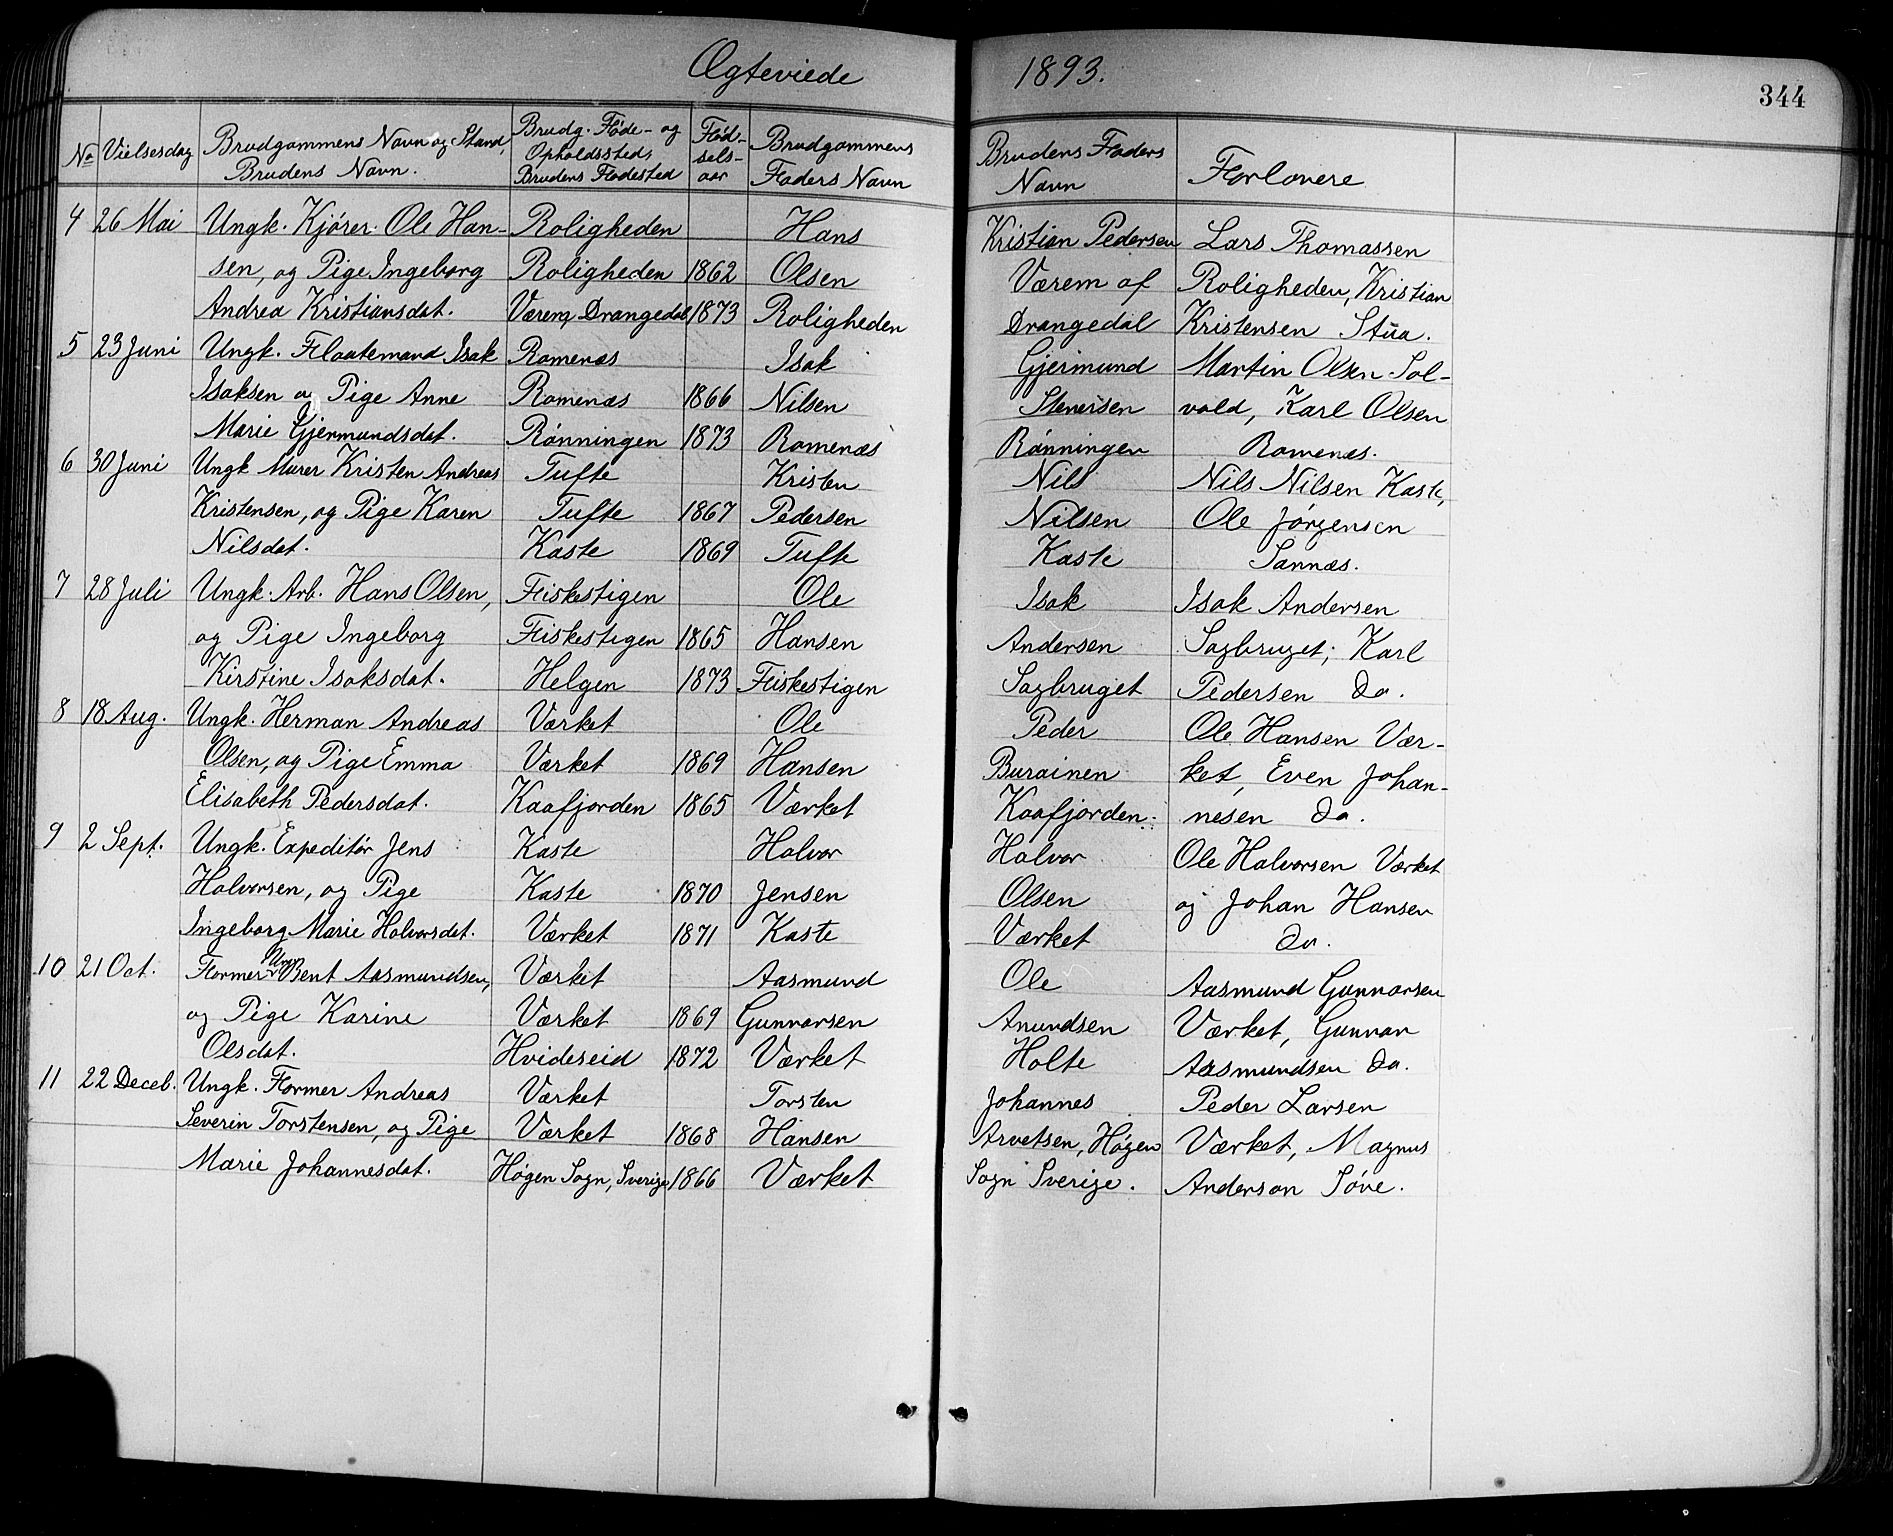 Ægteviede 1893.
344
No Vielsesdag Brudgommens Navn og Stand, Brudens Navn. Brudg. Føde- og Opholdssted, Brudens Fødested Fødselsaar Brudgommens Faders Navn Brudens Faders Navn Forlovere
4 26 Mai Ungk. Kjører. Ole Han- Roligheden Hans Kristian Pedersen Lars Thomassen
sen, og Pige Ingeborg Roligheden 1862 Olsen Værem af Roligheden, Kristian
Andrea Kristiansdat. Værem, Drangedal 1873 Roligheden Drangedal Kristensen Stua.
5 23 Juni Ungk. Flaatemand Isak Romenæs Isak Gjermund Martin Olsen Sol-
Isaksen og Pige Anne Romenæs 1866 Nilsen Stenersen vold, Karl Olsen
Marie Gjermundsdat. Rønningen 1873 Romenæs Rønningen Romenæs.
6 30 Juni Ungk Murer Kristen Andreas Tufte Kristen Nils Nils Nilsen Kaste,
Kristensen, og Pige Karen Tufte 1867 Pedersen Nilsen Ole Jørgensen
Nilsdat. Kaste 1869 Tufte Kaste Sannæs.
7 28 Juli Ungk. Arb. Hans Olsen, Fiskestigen Ole Isak Isak Andersen
og Pige Ingeborg Fiskestigen 1865 Hansen Andersen Sagbruget; Karl
Kirstine Isaksdat. Helgen 1873 Fiskestigen Sagbruget Pedersen Do.
8 18 Aug. Ungk. Herman Andreas Værket Ole Peder Ole Hansen Vær-
Olsen, og Pige Emma Værket 1869 Hansen Burainen ket, Even Johan-
Elisabeth Pedersdat. Kaafjorden 1865 Værket Kaafjorden. nesen Do.
9 2 Sept. Ungk. Expeditør Jens Kaste Halvor Halvor Ole Halvorsen Værket
Halvorsen, og Pige Kaste 1870 Jensen Olsen og Johan Hansen
Ingeborg Marie Halvorsdat. Værket 1871 Kaste Værket Do.
10 21 Oct. Former Ungk Bent Aasmundsen, Værket Aasmund Ole Aasmund Gunnarsen
og Pige Karine Værket 1869 Gunnarsen Anundsen Værket, Gunnar
Olsdat. Hvideseid 1872 Værket Holte Aasmundsen Do.
11 22 Deceb. Ungk. Former Andreas Værket Torsten Johannes Peder Larsen
Severin Torstensen, og Pige Værket 1868 Hansen Arvetsen, Høgen Værket, Magnus
Marie Johannesdat. Høgen Sogn, Sverige 1866 Værket Sogn Sverige. Anderson Søve.